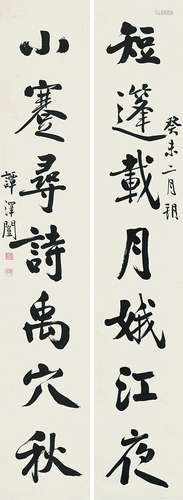 短篷載月娥江夜
癸未二月朔
小蹇尋詩禹穴秋
譚澤闓